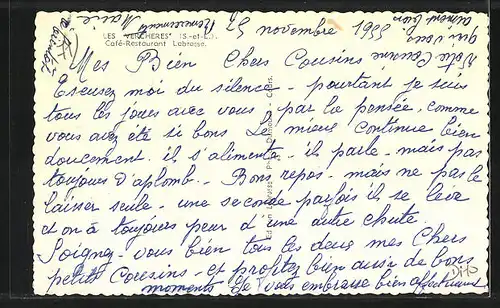 LES "VERCHERES" (S.-et-L.)
Café-Restaurant Labrosse.
27 novembre 1955
Mes Bien Chers Cousins
Excusez moi du silence - pourtant je suis
tous les joues avec vous, par la pensée, comme
vous avez été si bons. Le mieux continue bien
doucement. il s'alimente - il parle mais pas
toujours d'aplomb - Bon repos - mais ne pas le
laisser seule - une seconde parfois il se lève
et on à toujours peur d'une autre chute.
Soignez-vous bien tous les deux mes Chers
petits Cousins - et profitez bien aussi de bons
moments Je vous embrasse bien affectueus
Votre Cousine
qui vous
aiment bien
Marie
Remerciements